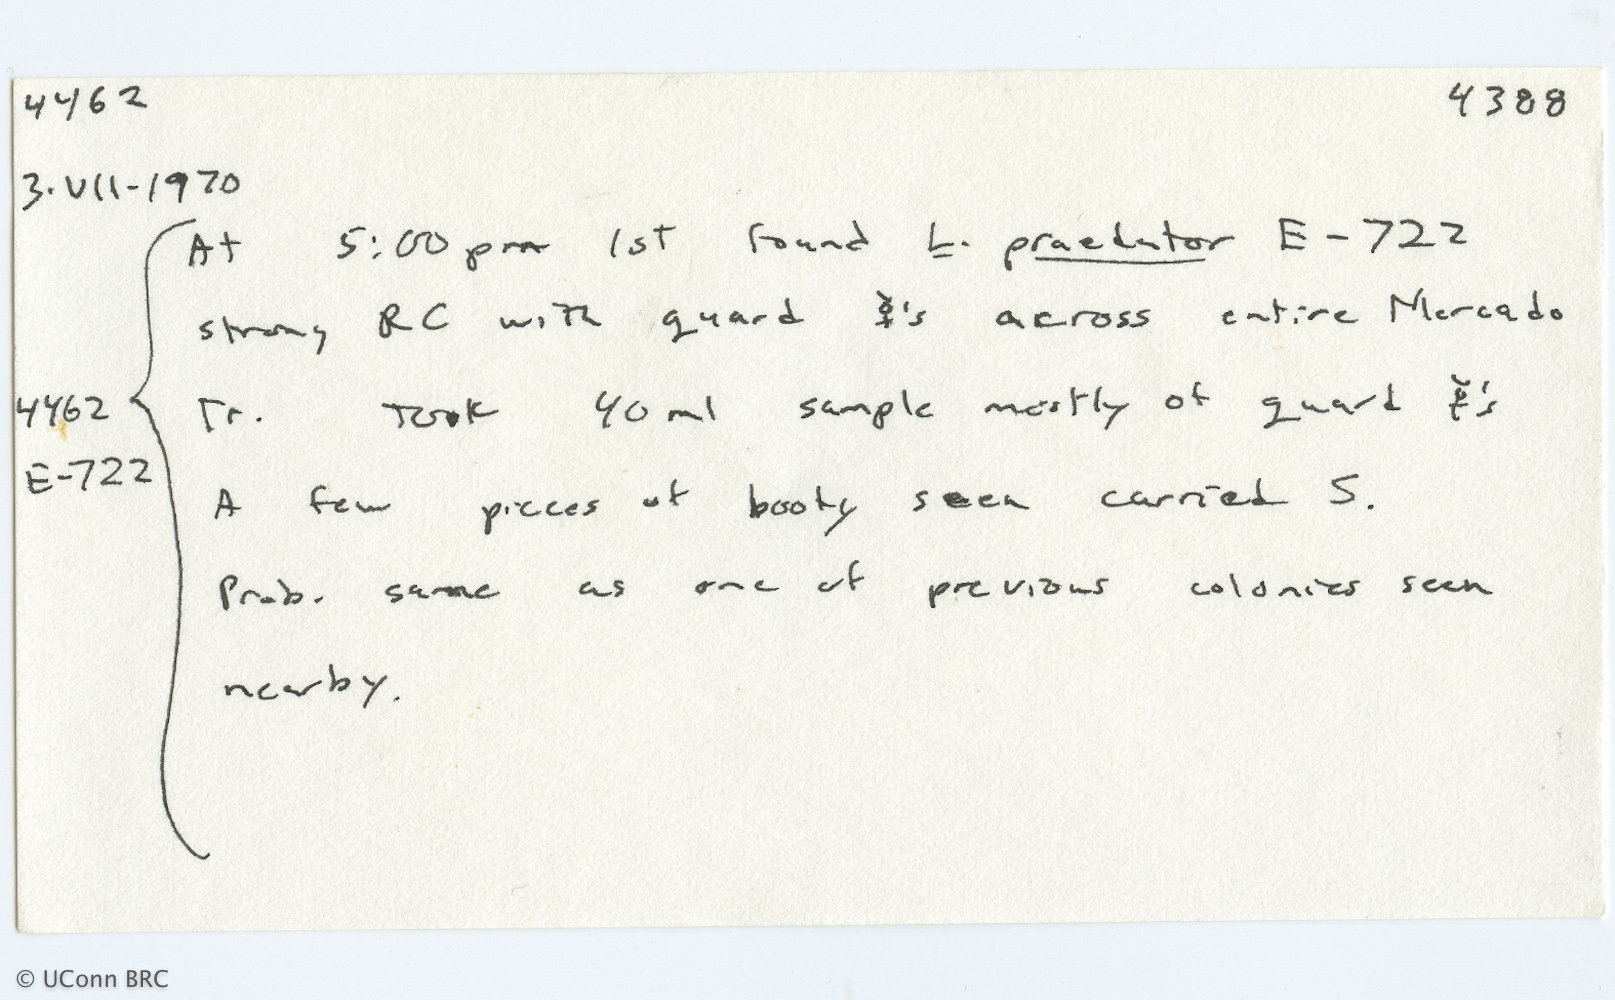 4462 4388
3.VII-1970
At 5:00 pm 1st found L. praedator E-722
strong RC with guard ☿'s across entire Mercado
4462 Tr. Took 40 ml sample mostly of guard ☿'s
E-722 A few pieces of booty seen carried S.
Prob. same as one of previous colonies seen
nearby.
© UConn BRC